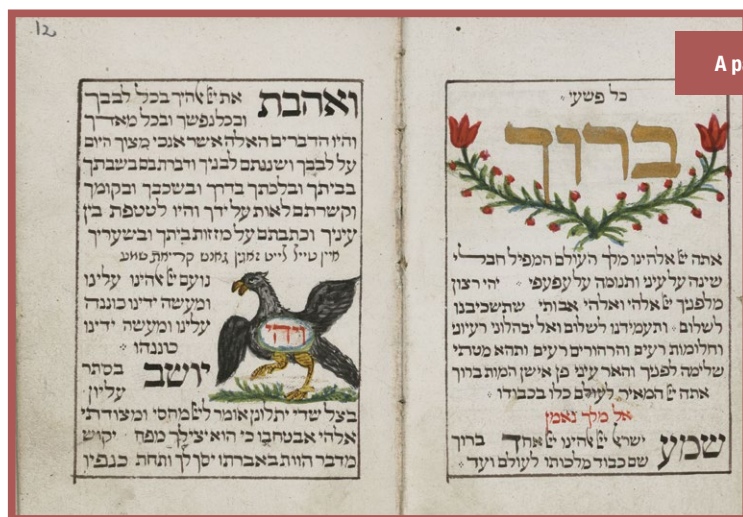 12
A pa
כל פשעי
ברוך
אתה יי אלהינו מלך העולם המפיל חבלי
שינה על עיני ותנומה על עפעפי יהי רצון
מלפניך יי אלהי ואלהי אבותי שתשכיבנו
לשלום ותעמידנו לשלום ואל יבהלוני רעיוני
וחלומות רעים והרהורים רעים ותהא מטתי
שלימה לפניך והאר עיני פן אישן המות ברוך
אתה יי המאיר לעולם כלו בכבודו
אל מלך נאמן
שמע ישראל יי אלהינו יי אחד ברוך
שם כבוד מלכותו לעולם ועד
ואהבת את יי אלהיך בכל לבבך
ובכל נפשך ובכל מאדך
והיו הדברים האלה אשר אנכי מצוך היום
על לבבך ושננתם לבניך ודברת בם בשבתך
בביתך ובלכתך בדרך ובשכבך ובקומך
וקשרתם לאות על ידך והיו לטטפת בין
עיניך וכתבתם על מזזות ביתך ובשעריך
איין טייל לייט זאגין גאנט קריאת שמע
ויהי נועם יי אלהינו עלינו
ומעשה ידינו כוננה
עלינו ומעשה ידינו
כוננהו
יושב בסתר
עליון
בצל שדי יתלונן אומר ליי מחסי ומצודתי
אלהי אבטח בו כי הוא יצילך מפח יקוש
מדבר הוות באברתו יסך לך ותחת כנפיו